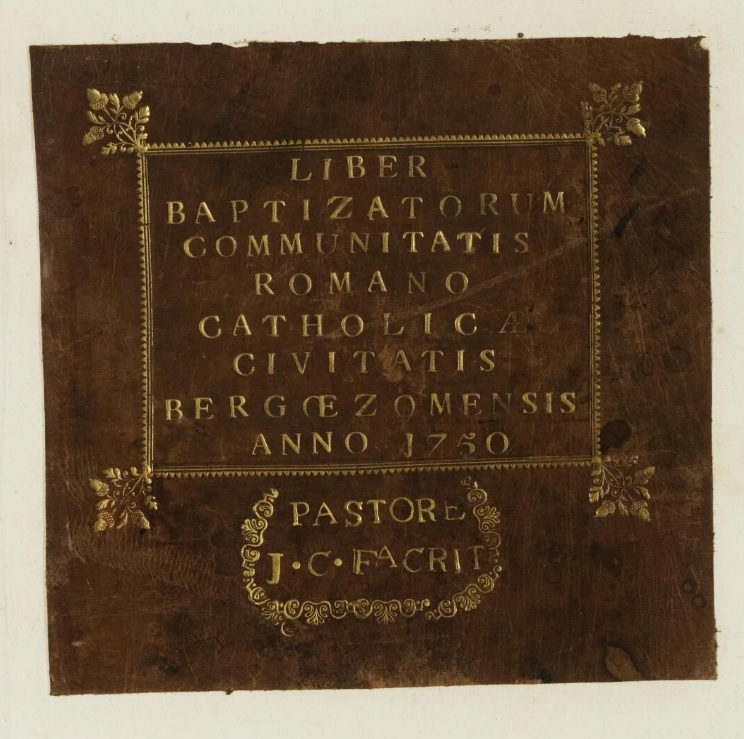 LIBER
BAPTIZATORUM
COMMUNITATIS
ROMANO
CATHOLICÆ
CIVITATIS
BERGŒZOMENSIS
ANNO 1750
PASTORE
J·C·FACRIT